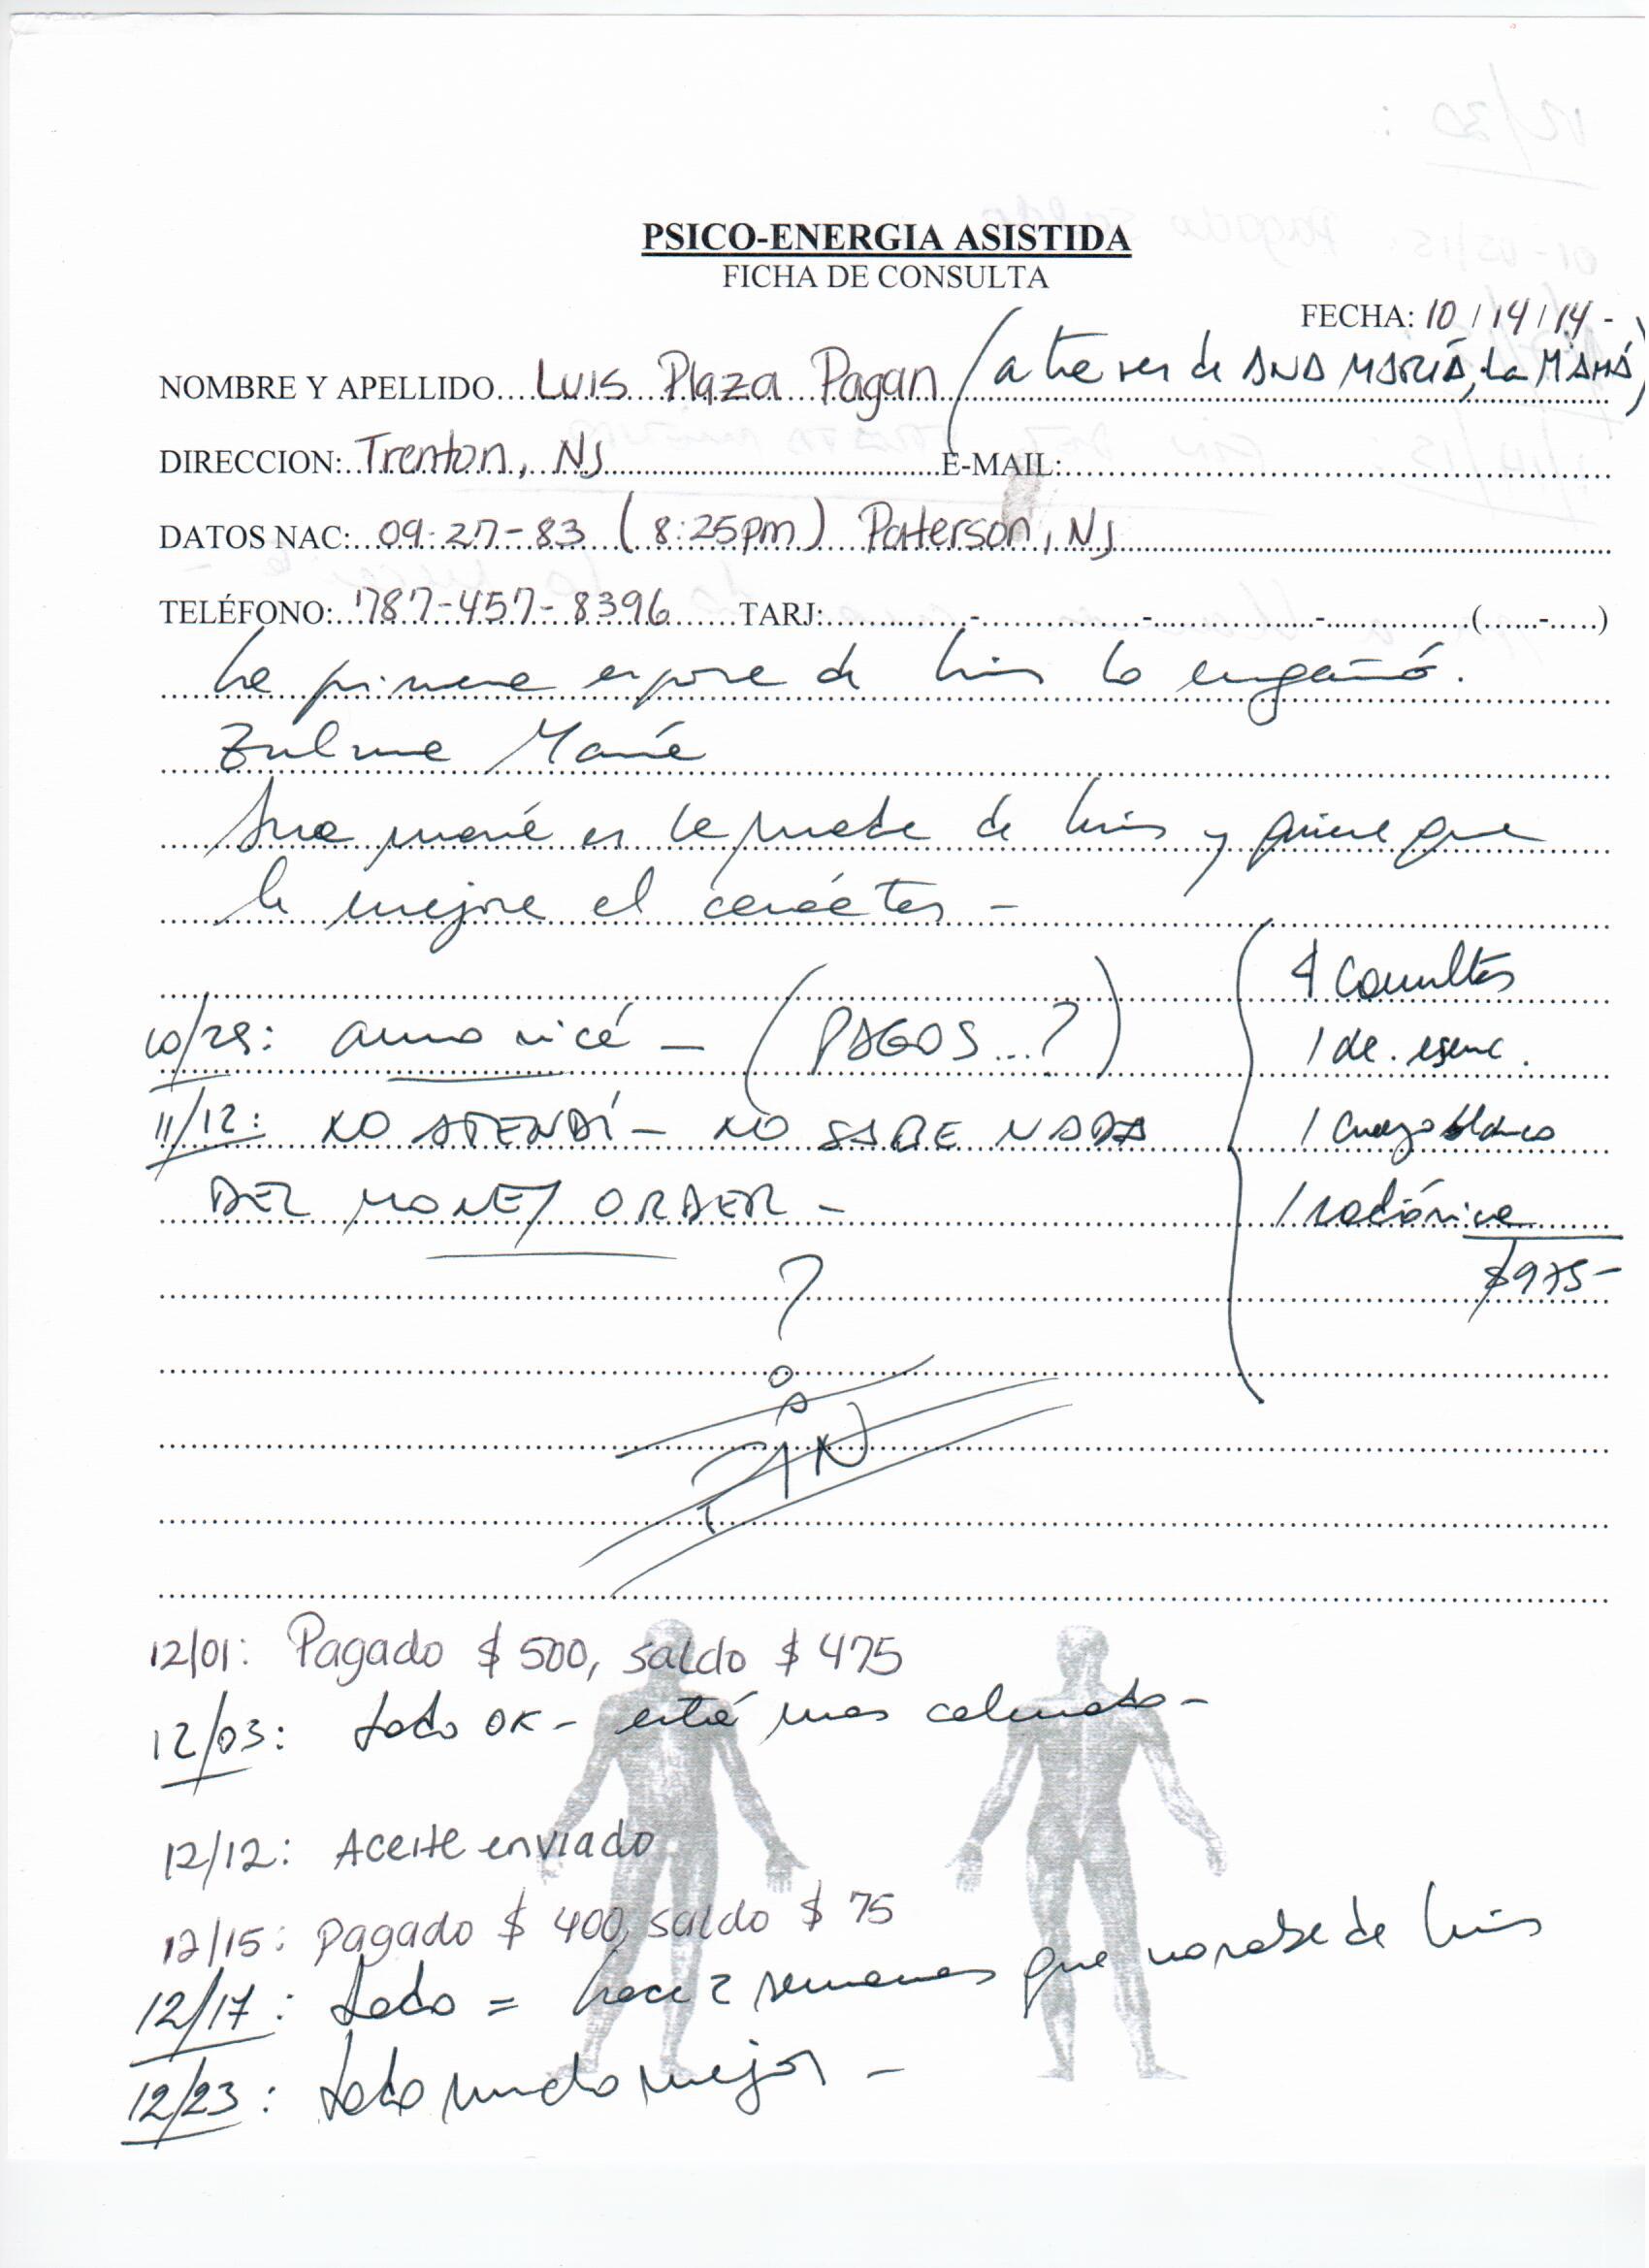 PSICO-ENERGIA ASISTIDA
FICHA DE CONSULTA
FECHA: 10 / 14 / 14 -
NOMBRE Y APELLIDO Luis Plaza Pagan (a través de ANA MARÍA, la MAMÁ)
DIRECCION: Trenton, NJ E-MAIL:
DATOS NAC: 09-27-83 (8:25pm) Paterson, NJ
TELÉFONO: 787-457-8396 TARJ: - - - ( - )
La primera esposa de Luis lo engañó.
Zulma María
Ana María es la madre de Luis y quiere que
le mejore el carácter -
4 Consultas
10/29: (PAGOS...?)
1 de. esenc.
11/12: NO ATENDÍ - NO SABE NADA
1 cuarzo blanco
DEL MONEY ORDER -
1 radiónica
$975-
?
12/01: Pagado $ 500, saldo $ 475
12/03: todo OK - está mas calmado -
12/12: Aceite enviado
12/15: pagado $ 400, saldo $ 75
12/17: todo = hace 2 semanas que no sabe de Luis
12/23: todo mucho mejor -